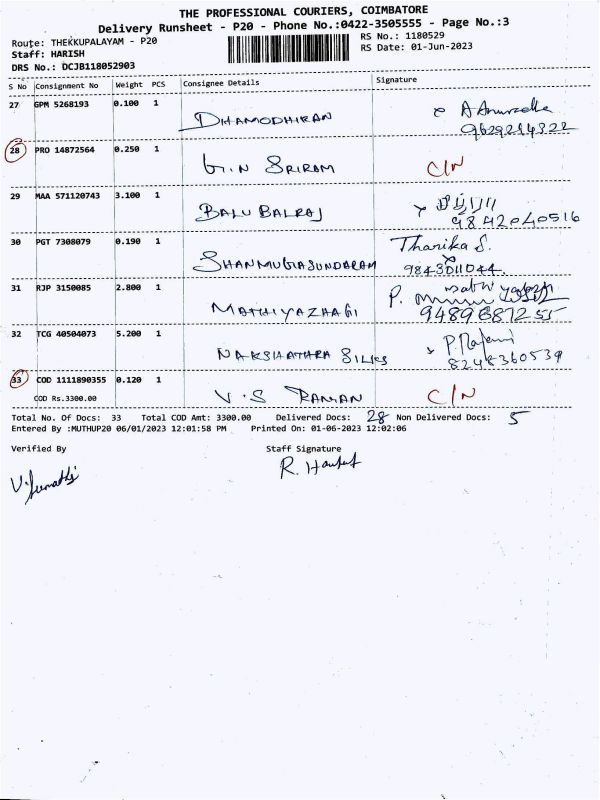 THE PROFESSIONAL COURIERS, COIMBATORE
Delivery Runsheet - P20 - Phone No.:0422-3505555 - Page No.:3
Route: THEKKUPALAYAM - P20
RS No.: 1180529
Staff: HARISH
RS Date: 01-Jun-2023
DRS No.: DCJB118052903
S No Consignment No Weight PCS Consignee Details Signature
27 GPM 5268193 0.100 1 DHAMODHIRAN
9629214322
28 PRO 14872564 0.250 1 G.N SRIRAM C/N
29 MAA 571120743 3.100 1 BALU BALRAJ
9842040516
30 PGT 7308079 0.190 1 SHANMUGASUNDARAM Tharika S.
9843011044
31 RJP 3150085 2.800 1 MATHIYAZHAGI P.
9489687255
32 TCG 40504073 5.200 1 NAKSHATHRA SILKS P. Rajani
8248360539
33 COD 1111890355 0.120 1 V.S RAMAN C/N
COD Rs.3300.00
Total No. Of Docs: 33 Total COD Amt: 3300.00 Delivered Docs: 28 Non Delivered Docs: 5
Entered By :MUTHUP20 06/01/2023 12:01:58 PM Printed On: 01-06-2023 12:02:06
Verified By Staff Signature